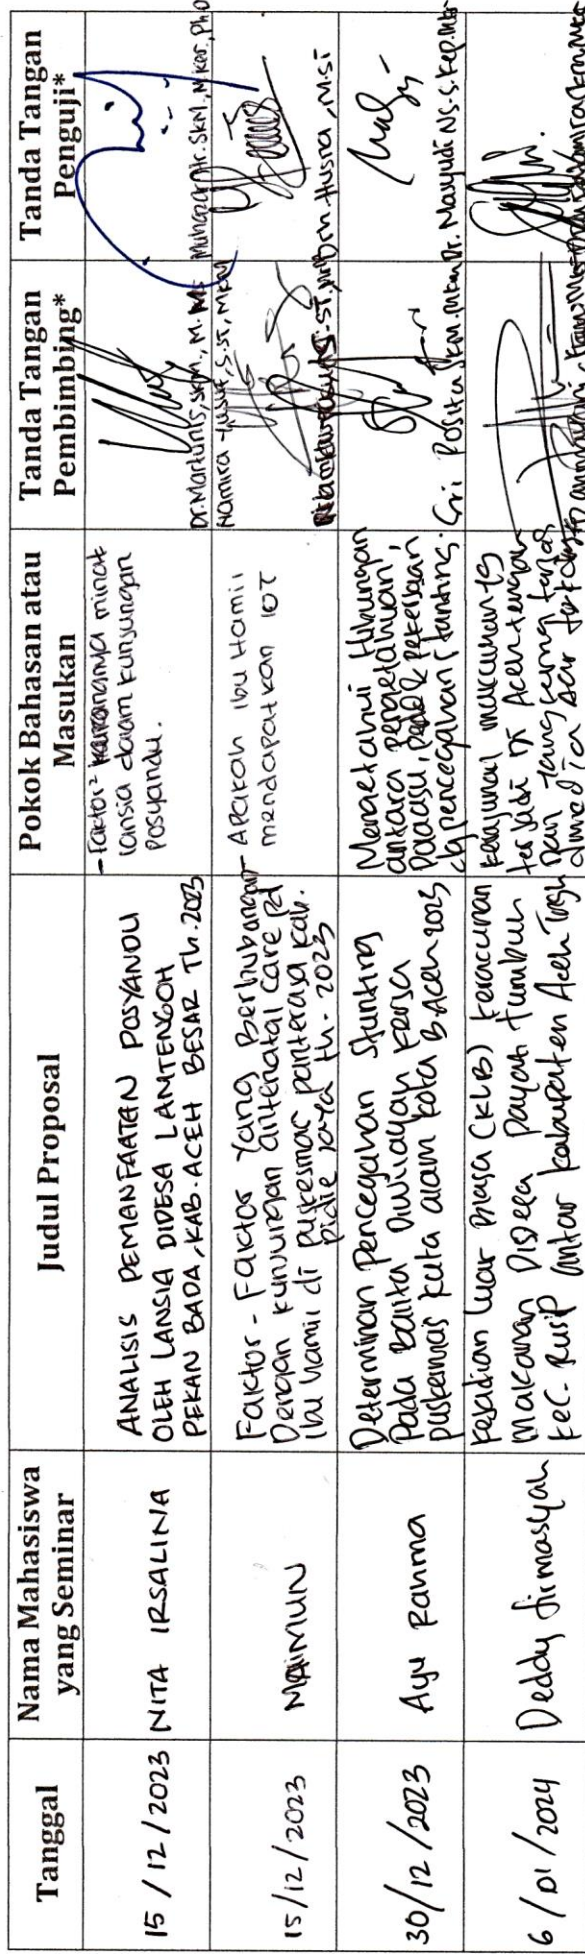 Tanggal
Nama Mahasiswa
yang Seminar
Judul Proposal
Pokok Bahasan atau
Masukan
Tanda Tangan
Pembimbing*
Tanda Tangan
Penguji*
15/12/2023
NITA IRSALINA
ANALISIS PEMANFAATAN POSYANDU
OLEH LANSIA DIDESA LAMTENGOH
PEKAN BADA, KAB. ACEH BESAR Th. 2023
- Faktor² kurangnya minat
lansia dalam kunjungan
Posyandu.
Dr. Martunis, SKM., M.Kes
Muhazar Hr. SKM., M.Kes., Ph.D
15/12/2023
MAIMUN
Faktor-Faktor Yang Berhubungan
Dengan kunjungan antenatal care pd
Ibu hamil di puskesmas panteraja kab.
Pidie Jaya th. 2023
- Apakah ibu Hamil
mendapatkan IDT
Namira Yusuf, S.ST, MKM
Husna, M.ST
30/12/2023
Ayu Rahma
Determinan Pencegahan Stunting
Pada Balita Diwilayah Kerja
puskesmas kuta alam kota B.Aceh 2023
Mengetahui Hubungan
antara pengetahuan,
& pekerjaan
dg pencegahan stunting.
Sri Rosita SKM. MKM
Dr. Masyudi NS. S.Kep. M.Kes
6/01/2024
Deddy firmasyah
Kejadian Luar Biasa (KLB) keracunan
Makanan Didesa Payah Tumbun
Kec. Rusip antar kabupaten Aceh Tngh
terjadi Di Aceh tengah